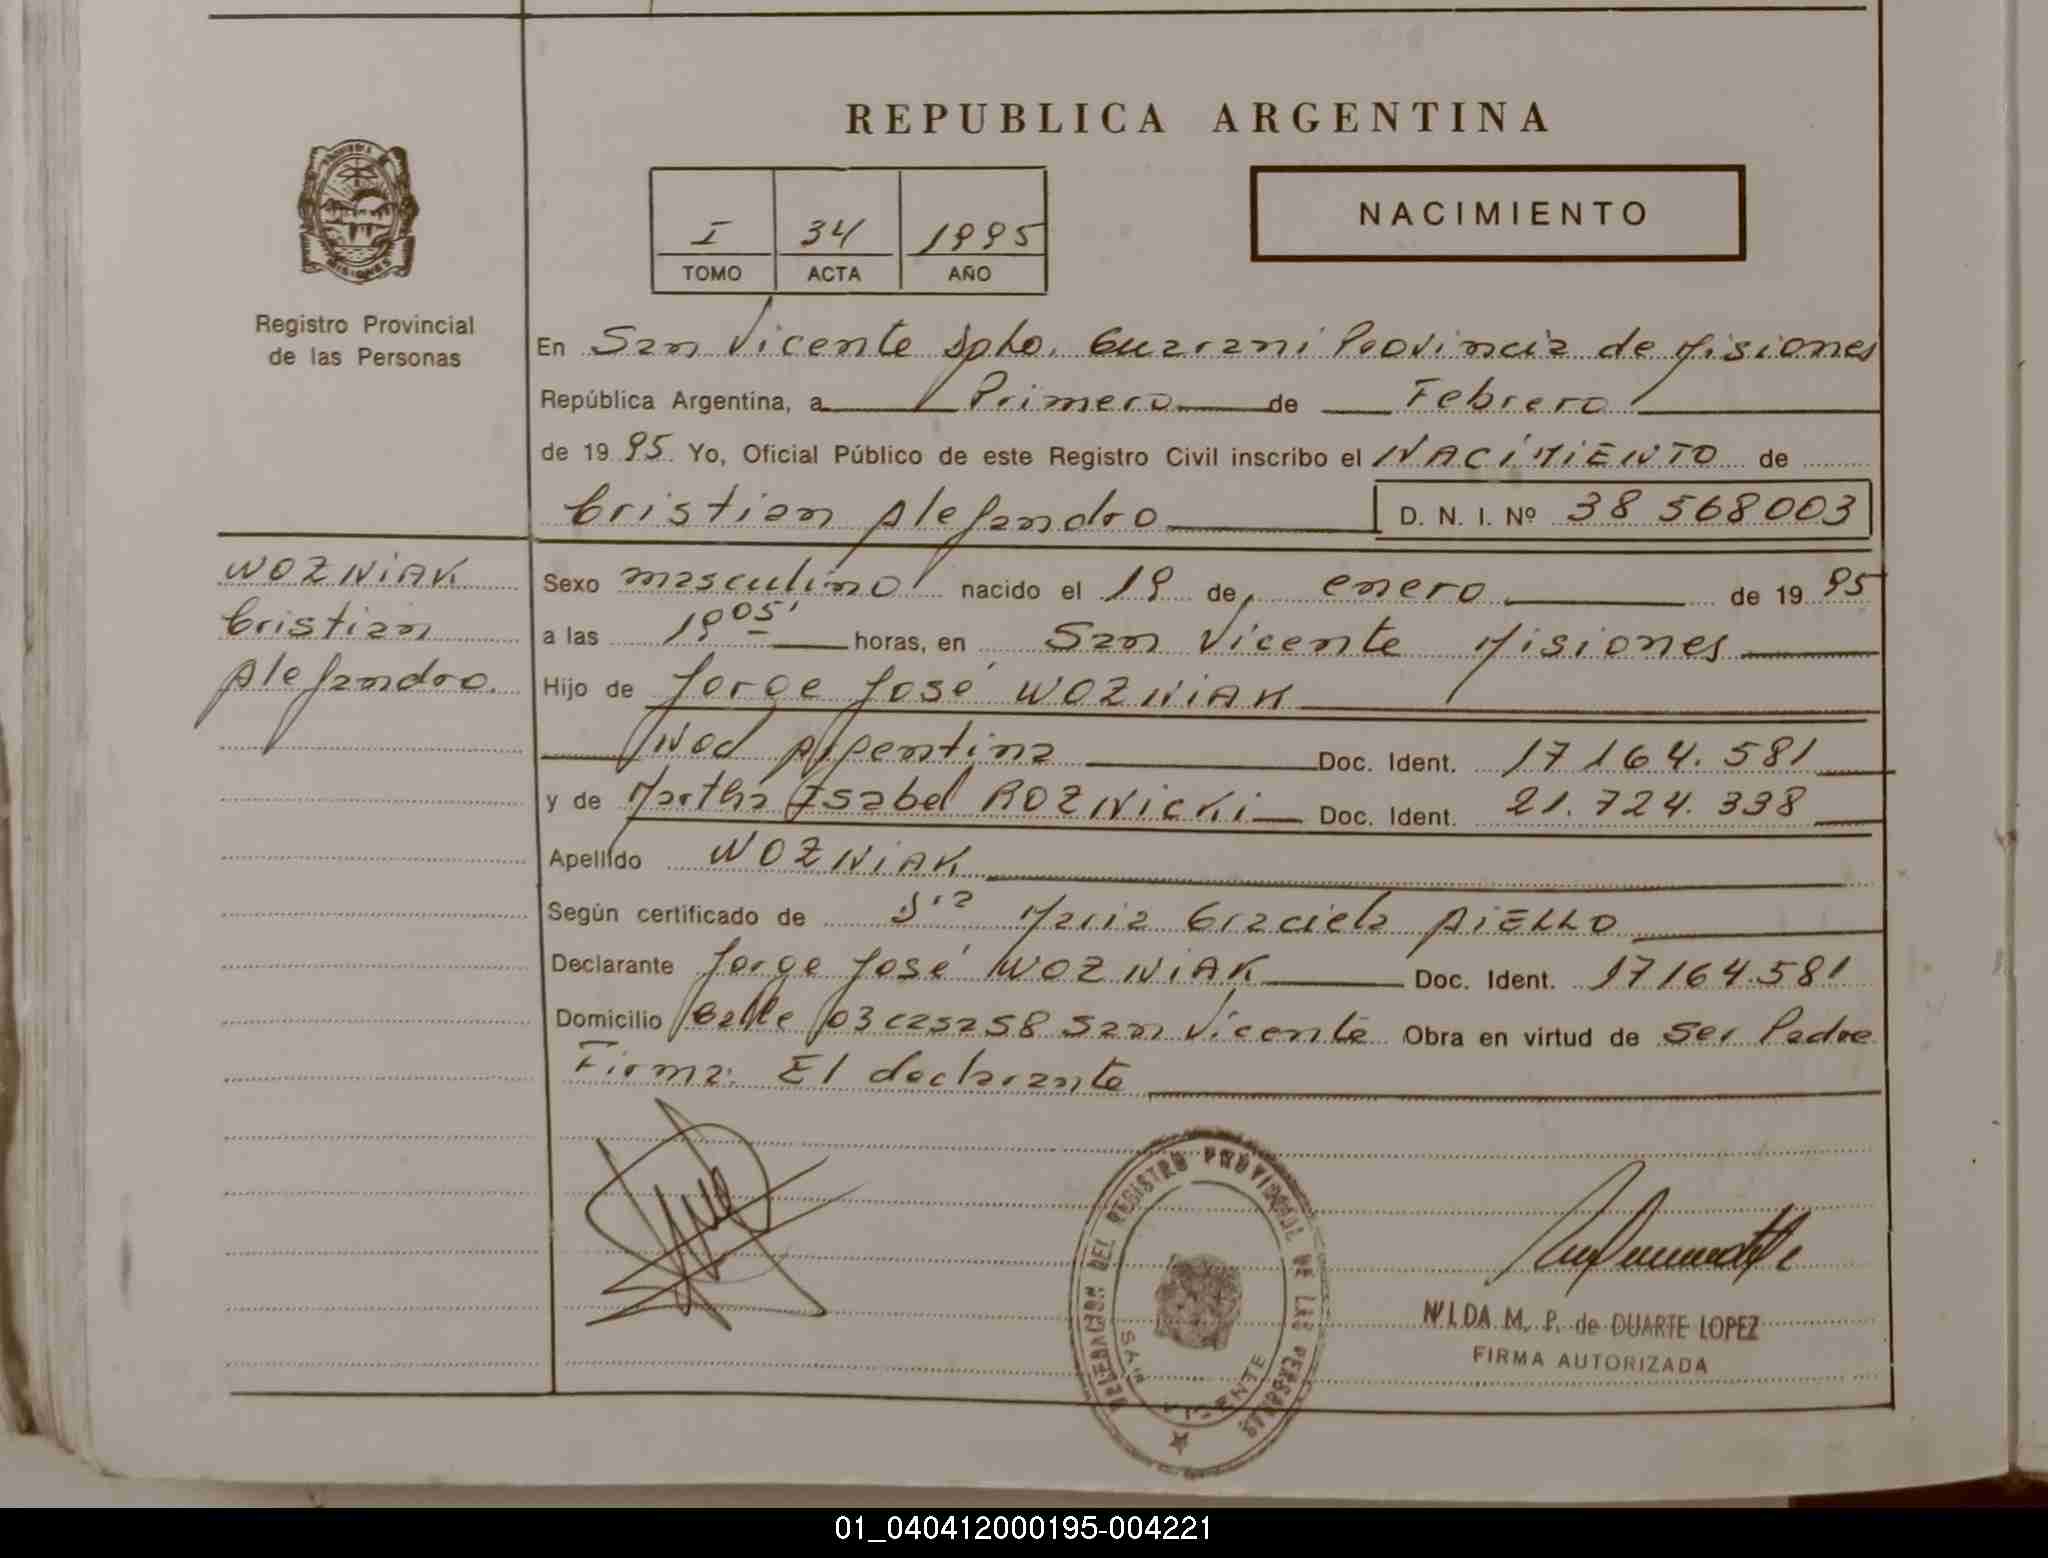 REPUBLICA ARGENTINA
NACIMIENTO
I 34 1995
TOMO ACTA AÑO
MISIONES
Registro Provincial
de las Personas
En San Vicente Dpto. Guarani Provincia de Misiones
República Argentina, a Primero de Febrero
de 19 95 Yo, Oficial Público de este Registro Civil inscribo el NACIMIENTO de
Cristian Alejandro D. N. I. Nº 38 568003
WOZNIAK
Cristian
Alejandro.
Sexo masculino nacido el 19 de enero de 19 95
a las 19 05' horas, en San Vicente Misiones
Hijo de Jorge José WOZNIAK
Nac Argentina Doc. Ident. 17164.581
y de Martha Isabel ROZNICKI Doc. Ident. 21.724.338
Apellido WOZNIAK
Según certificado de Dra Maria Graciela AIELLO
Declarante Jorge José WOZNIAK Doc. Ident. 17164.581
Domicilio Calle 103 casa 258 San Vicente Obra en virtud de ser Padre
Firma: El declarante
DELEGACION DEL REGISTRO PROVINCIAL DE LAS PERSONAS
SAN VICENTE
NILDA M. P. de DUARTE LOPEZ
FIRMA AUTORIZADA
01_040412000195-004221